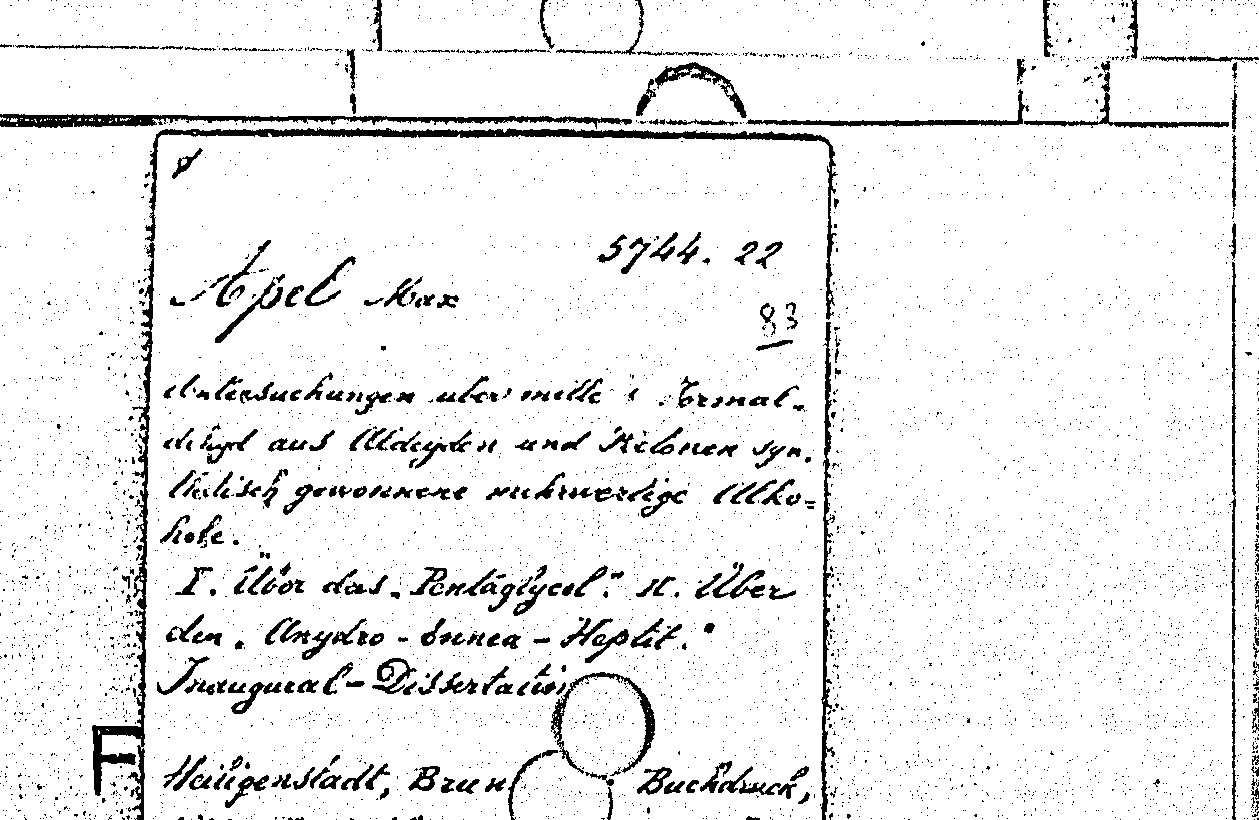 5744. 22
Apel Max
83
Untersuchungen uber mitte s Formal-
dehyd aus Aldeyden und Ketonen syn.
thetisch gewonnene mehrwertige Alko=
hole.
I. Über das „Pentaglycol". II. Über
den „Anydro-Ennea-Heptit."
Inaugural-Dissertation
F
Heiligenstadt, Brun Buchdruck,